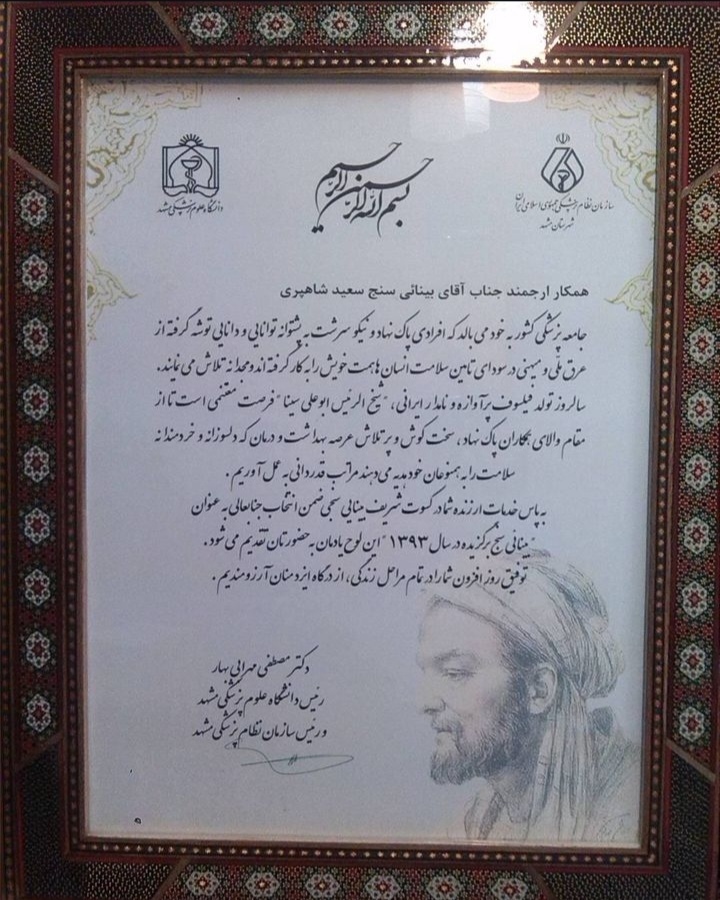 بسم الله الرحمن الرحیم
سازمان نظام پزشکی جمهوری اسلامی ایران
شهرستان مشهد
دانشگاه علوم پزشکی مشهد
همکار ارجمند جناب آقای بینائی سنج سعید شاهپری
جامعه پزشکی کشور به خود می بالد که افرادی پاک نهاد و نیکو سرشت به پشتوانه توانایی و دانایی توشه گرفته از
عرق ملی و میهنی در سودای تامین سلامت انسان ها همت خویش را به کار گرفته اند و مجدانه تلاش می نمایند.
سالروز تولد فیلسوف پرآوازه و نامدار ایرانی، "شیخ الرئیس ابوعلی سینا" فرصت مغتنمی است تا از
مقام والای همکاران پاک نهاد، سخت کوش و پر تلاش عرصه بهداشت و درمان که دلسوزانه و خردمندانه
سلامت را به همنوعان خود هدیه می دهند مراتب قدردانی به عمل آوریم.
به پاس خدمات ارزنده شما در کسوت شریف بینایی سنجی ضمن انتخاب جنابعالی به عنوان
"بینائی سنج برگزیده در سال ۱۳۹۳" این لوح یادمان به حضورتان تقدیم می شود.
توفیق روز افزون شما را در تمام مراحل زندگی، از درگاه ایزد منان آرزومندیم.
دکتر مصطفی مهرابی بهار
رئیس دانشگاه علوم پزشکی مشهد
و رئیس سازمان نظام پزشکی مشهد